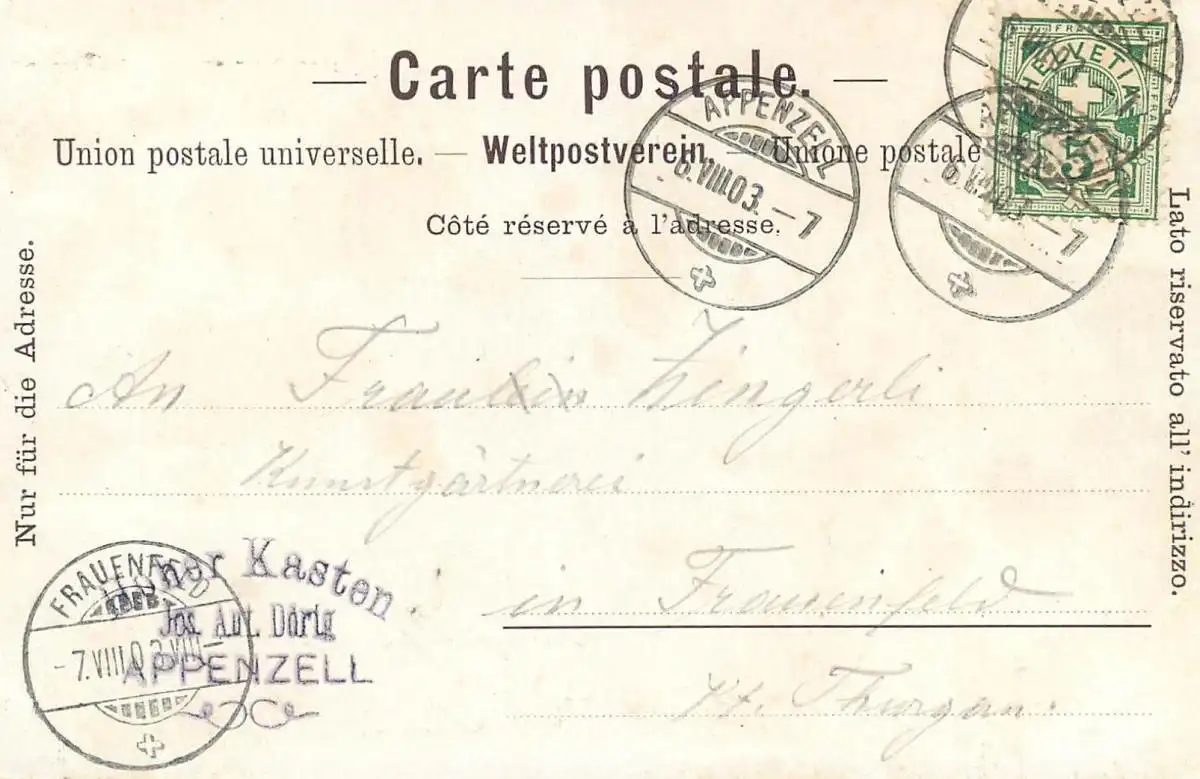 — Carte postale. —
Union postale universelle. — Weltpostverein. — Unione postale
Côté réservé à l'adresse.
Nur für die Adresse.
Lato riservato all' indirizzo.
FRANCO
HELVETIA
5
APPENZELL
6.VIII.03.–7
6.VIII.03.–7
An Fraulein Zingerli
Kunstgärtnerei
in Frauenfeld
Kt. Thurgau.
FRAUENFELD
-7.VIII.03.VIII-
Hoher Kasten
Jos. Ant. Dörig
APPENZELL